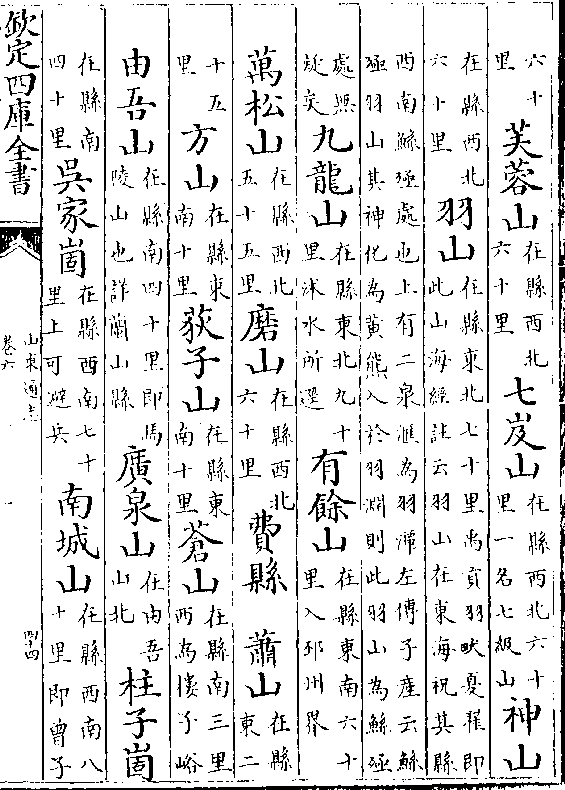 六十里芙蓉山在縣西北六十里七岌山在縣西北六十里一名七級山神山
在縣西北六十里羽山在縣東北七十里禹貢羽畎夏翟即此山海經註云羽山在東海祝其縣
西南鯀殛處也上有二泉滙為羽潭左傳子產云鯀殛羽山其神化為黃熊入於羽淵則此羽山為鯀殛
處無疑矣九龍山在縣東北九十里沭水所遶有餘山在縣東南六十里入邳州界
萬松山在縣西北五十五里磨山在縣西北六十里 費縣 蕭山在縣東二
十五里方山在縣東南十里荻子山在縣東南十里蒼山在縣南三里西為摟子峪
由吾山在縣南四十里即馬陵山也詳蘭山縣廣泉山在由吾山北柱子崮
在縣南四十里吳家崮在縣西南七十里上可避兵南城山在縣西南八十里即曾子
欽定四庫全書
山東通志
卷六
四十四